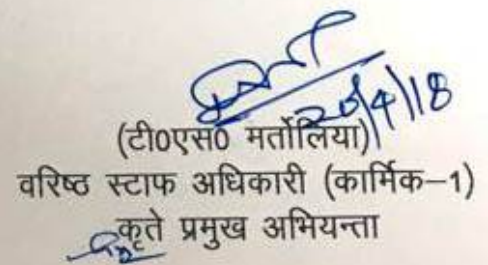 20/4/18
(टी0एस0 मर्तोलिया)
वरिष्ठ स्टाफ अधिकारी (कार्मिक–1)
कृते प्रमुख अभियन्ता